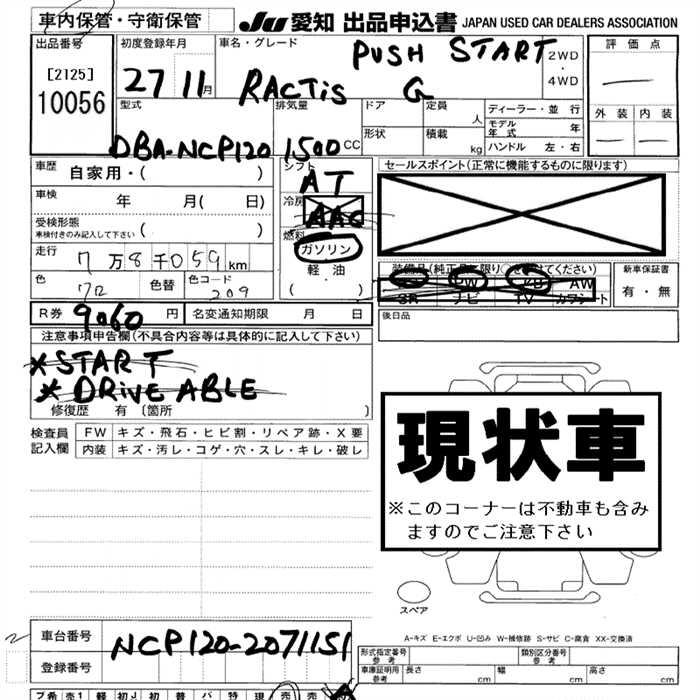 車内保管・守衛保管 JU 愛知 出品申込書 JAPAN USED CAR DEALERS ASSOCIATION
出品番号 初度登録年月 車名・グレード 2WD ・ 4WD 評価点
[2125] 10056 27 11月 RACTIS PUSH START G
外装 内装
型式 排気量 ドア 定員 人 ディーラー・並行
モデル年式 年
形状 積載 kg ハンドル 左・右
DBA-NCP120 1500 CC
車歴 自家用・( ) シフト AT セールスポイント(正常に機能するものに限ります)
車検 年 月( 日) 冷房 AAC
受検形態 車検付きのみ記入して下さい ( ) 燃料 ガソリン
走行 7万8千059km 軽油
色 色替 色コード 209 ( ・ )
装備品(純正品に限り○を付けてください) 新車保証書
PW AW 有・無
SR ナビ TV カワシート
R券 9060 円 名変通知期限 月 日 後日品
注意事項申告欄(不具合内容等は具体的に記入して下さい)
*START
*DRIVE ABLE
修復歴 有 〔箇所 〕
検査員記入欄 FW キズ・飛石・ヒビ割・リペア跡・X要
内装 キズ・汚レ・コゲ・穴・スレ・キレ・破レ
現状車
※このコーナーは不動車も含み
ますのでご注意下さい
スペア
A-キズ E-エクボ U-凹み W-補修跡 S-サビ C-腐食 XX-交換済
車台番号 NCP120-2071151
登録番号
形式指定番号 参考 類別区分番号 参考
車庫証明用 参考 長さ cm 幅 cm 高さ cm